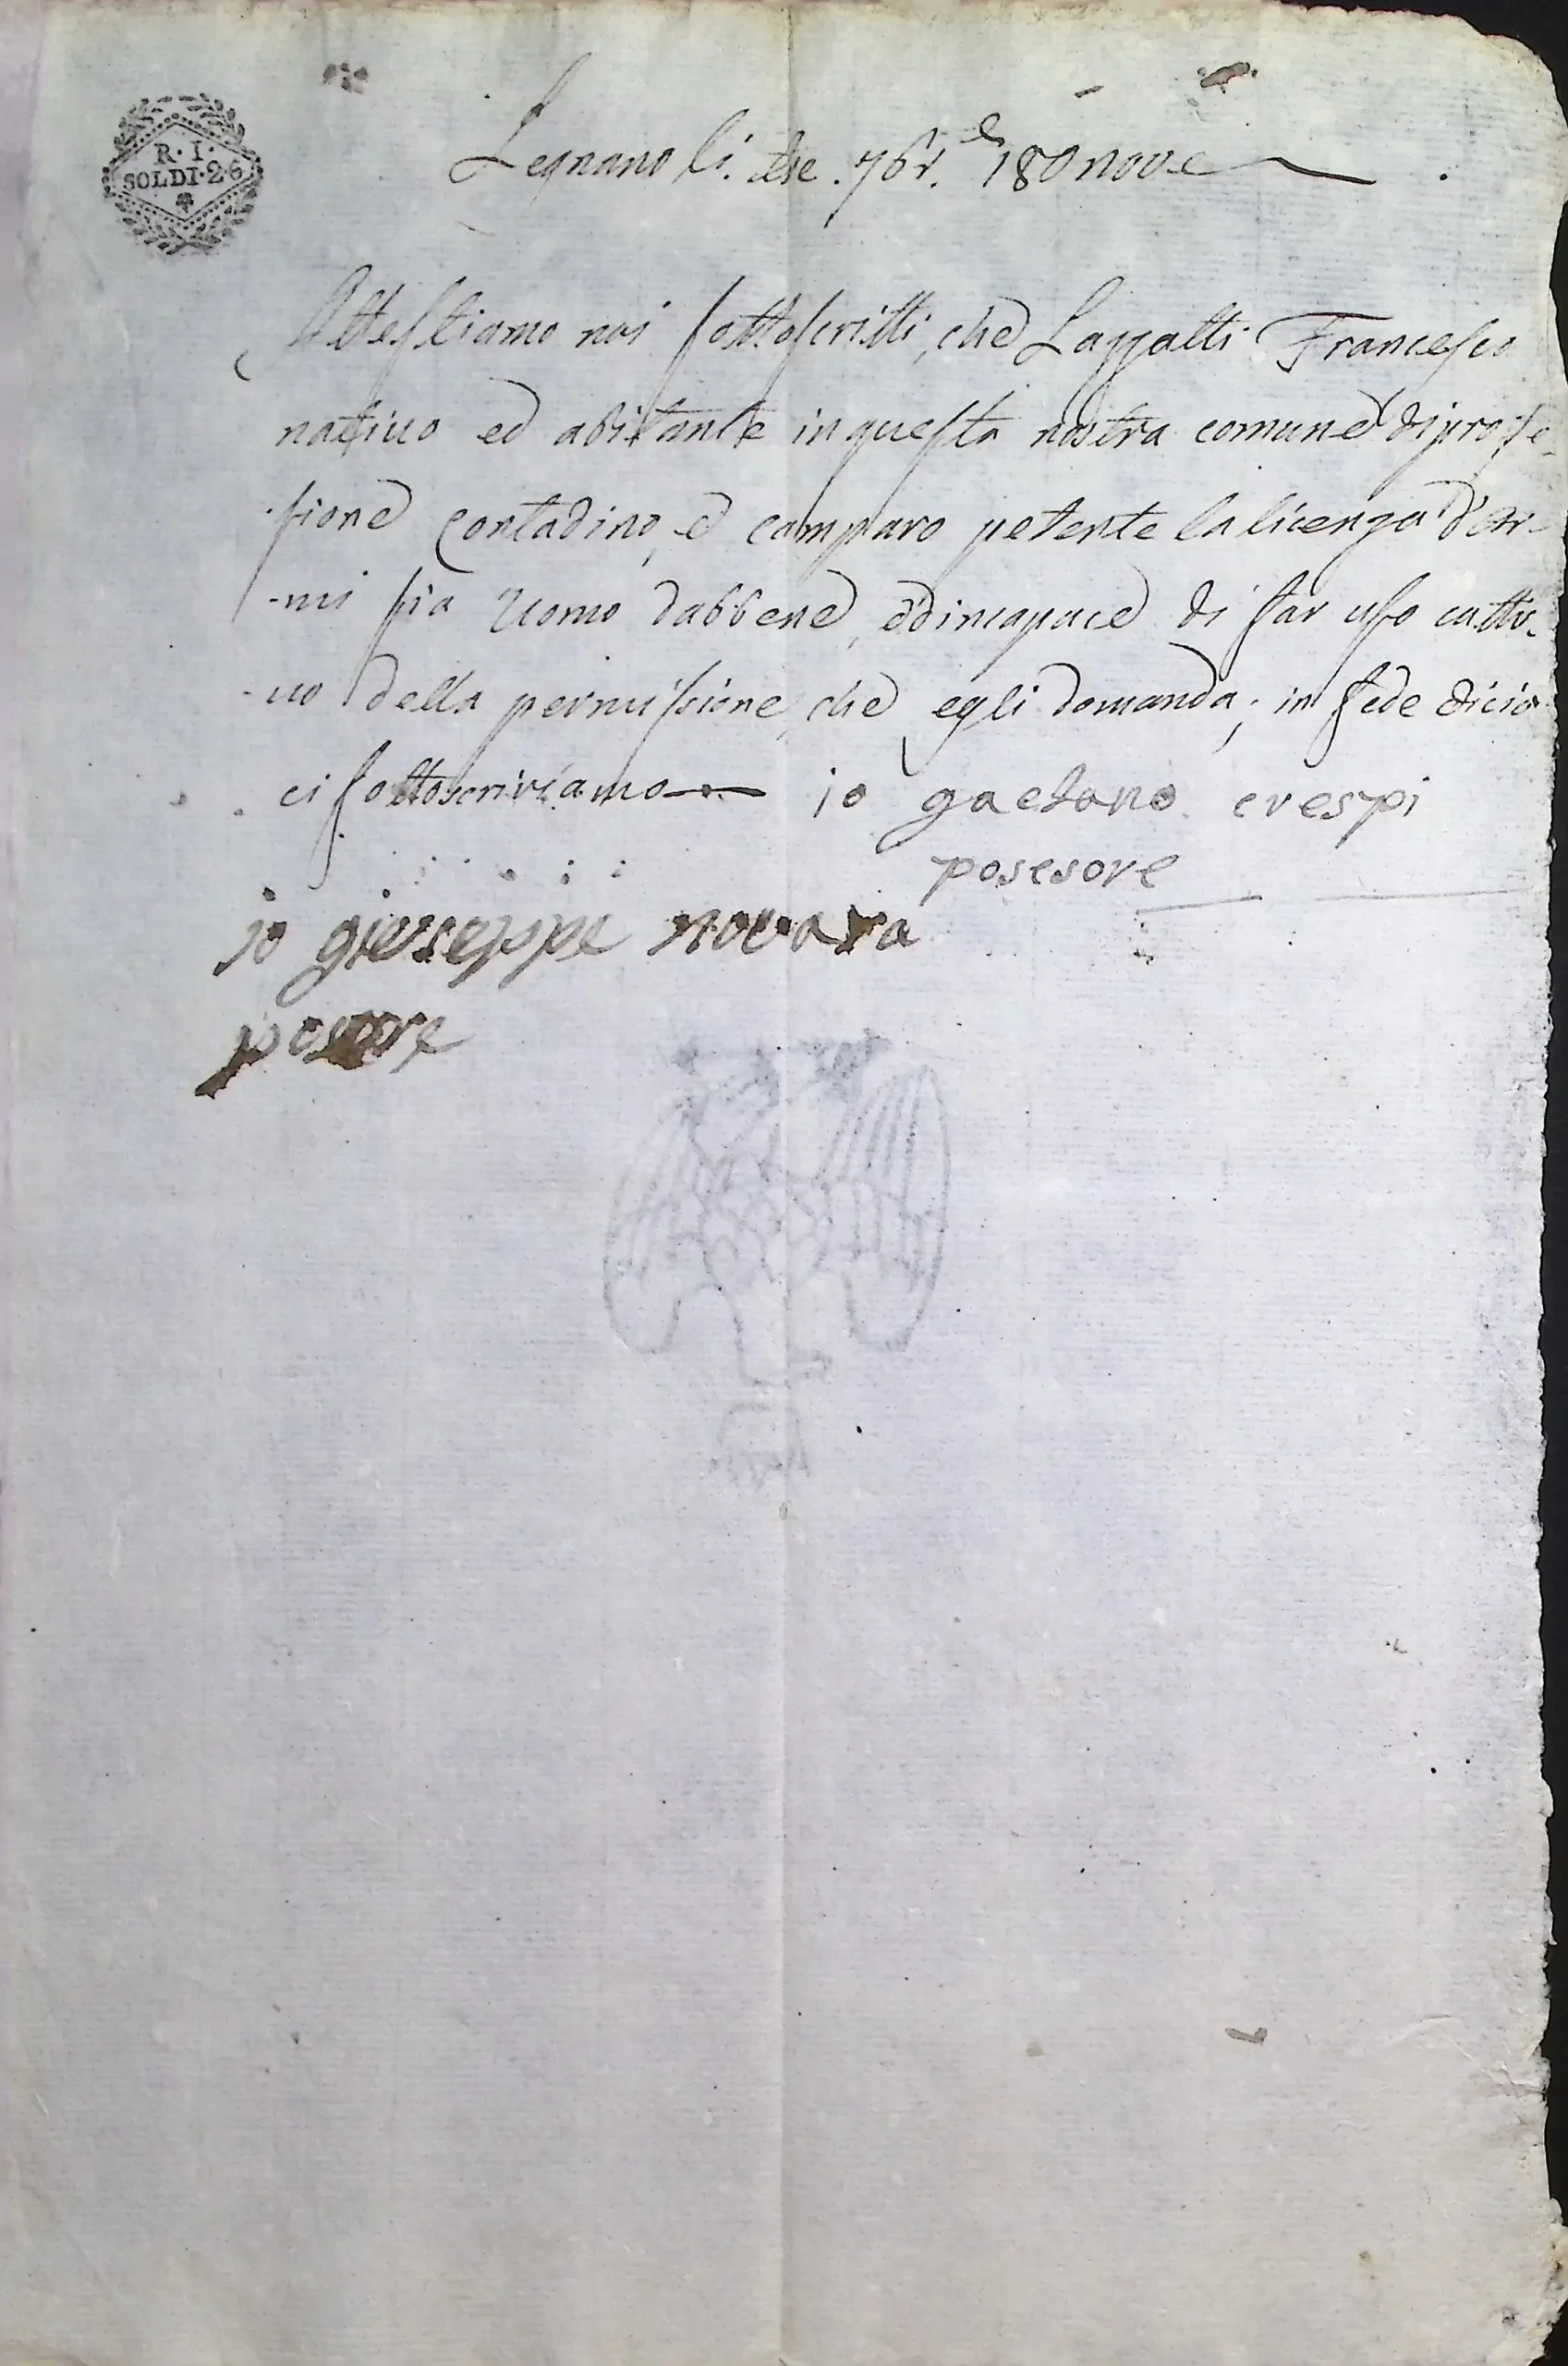 R. I.
SOLDI. 26
Legnano li. tre. 7br.e 180nove
Attestiamo noi sottoscritti, che Lazzatti Francesco
nativo ed abitante in questa nostra comune di profe-
-sione contadino, e camparo petente la licenza d'Ar-
-mi sia Uomo dabbene, ed incapace di far uso catti-
-uo della permissione, che egli domanda; in fede di cio
ci sottoscriviamo io gaetano crespi
posesore
io giuseppe novara